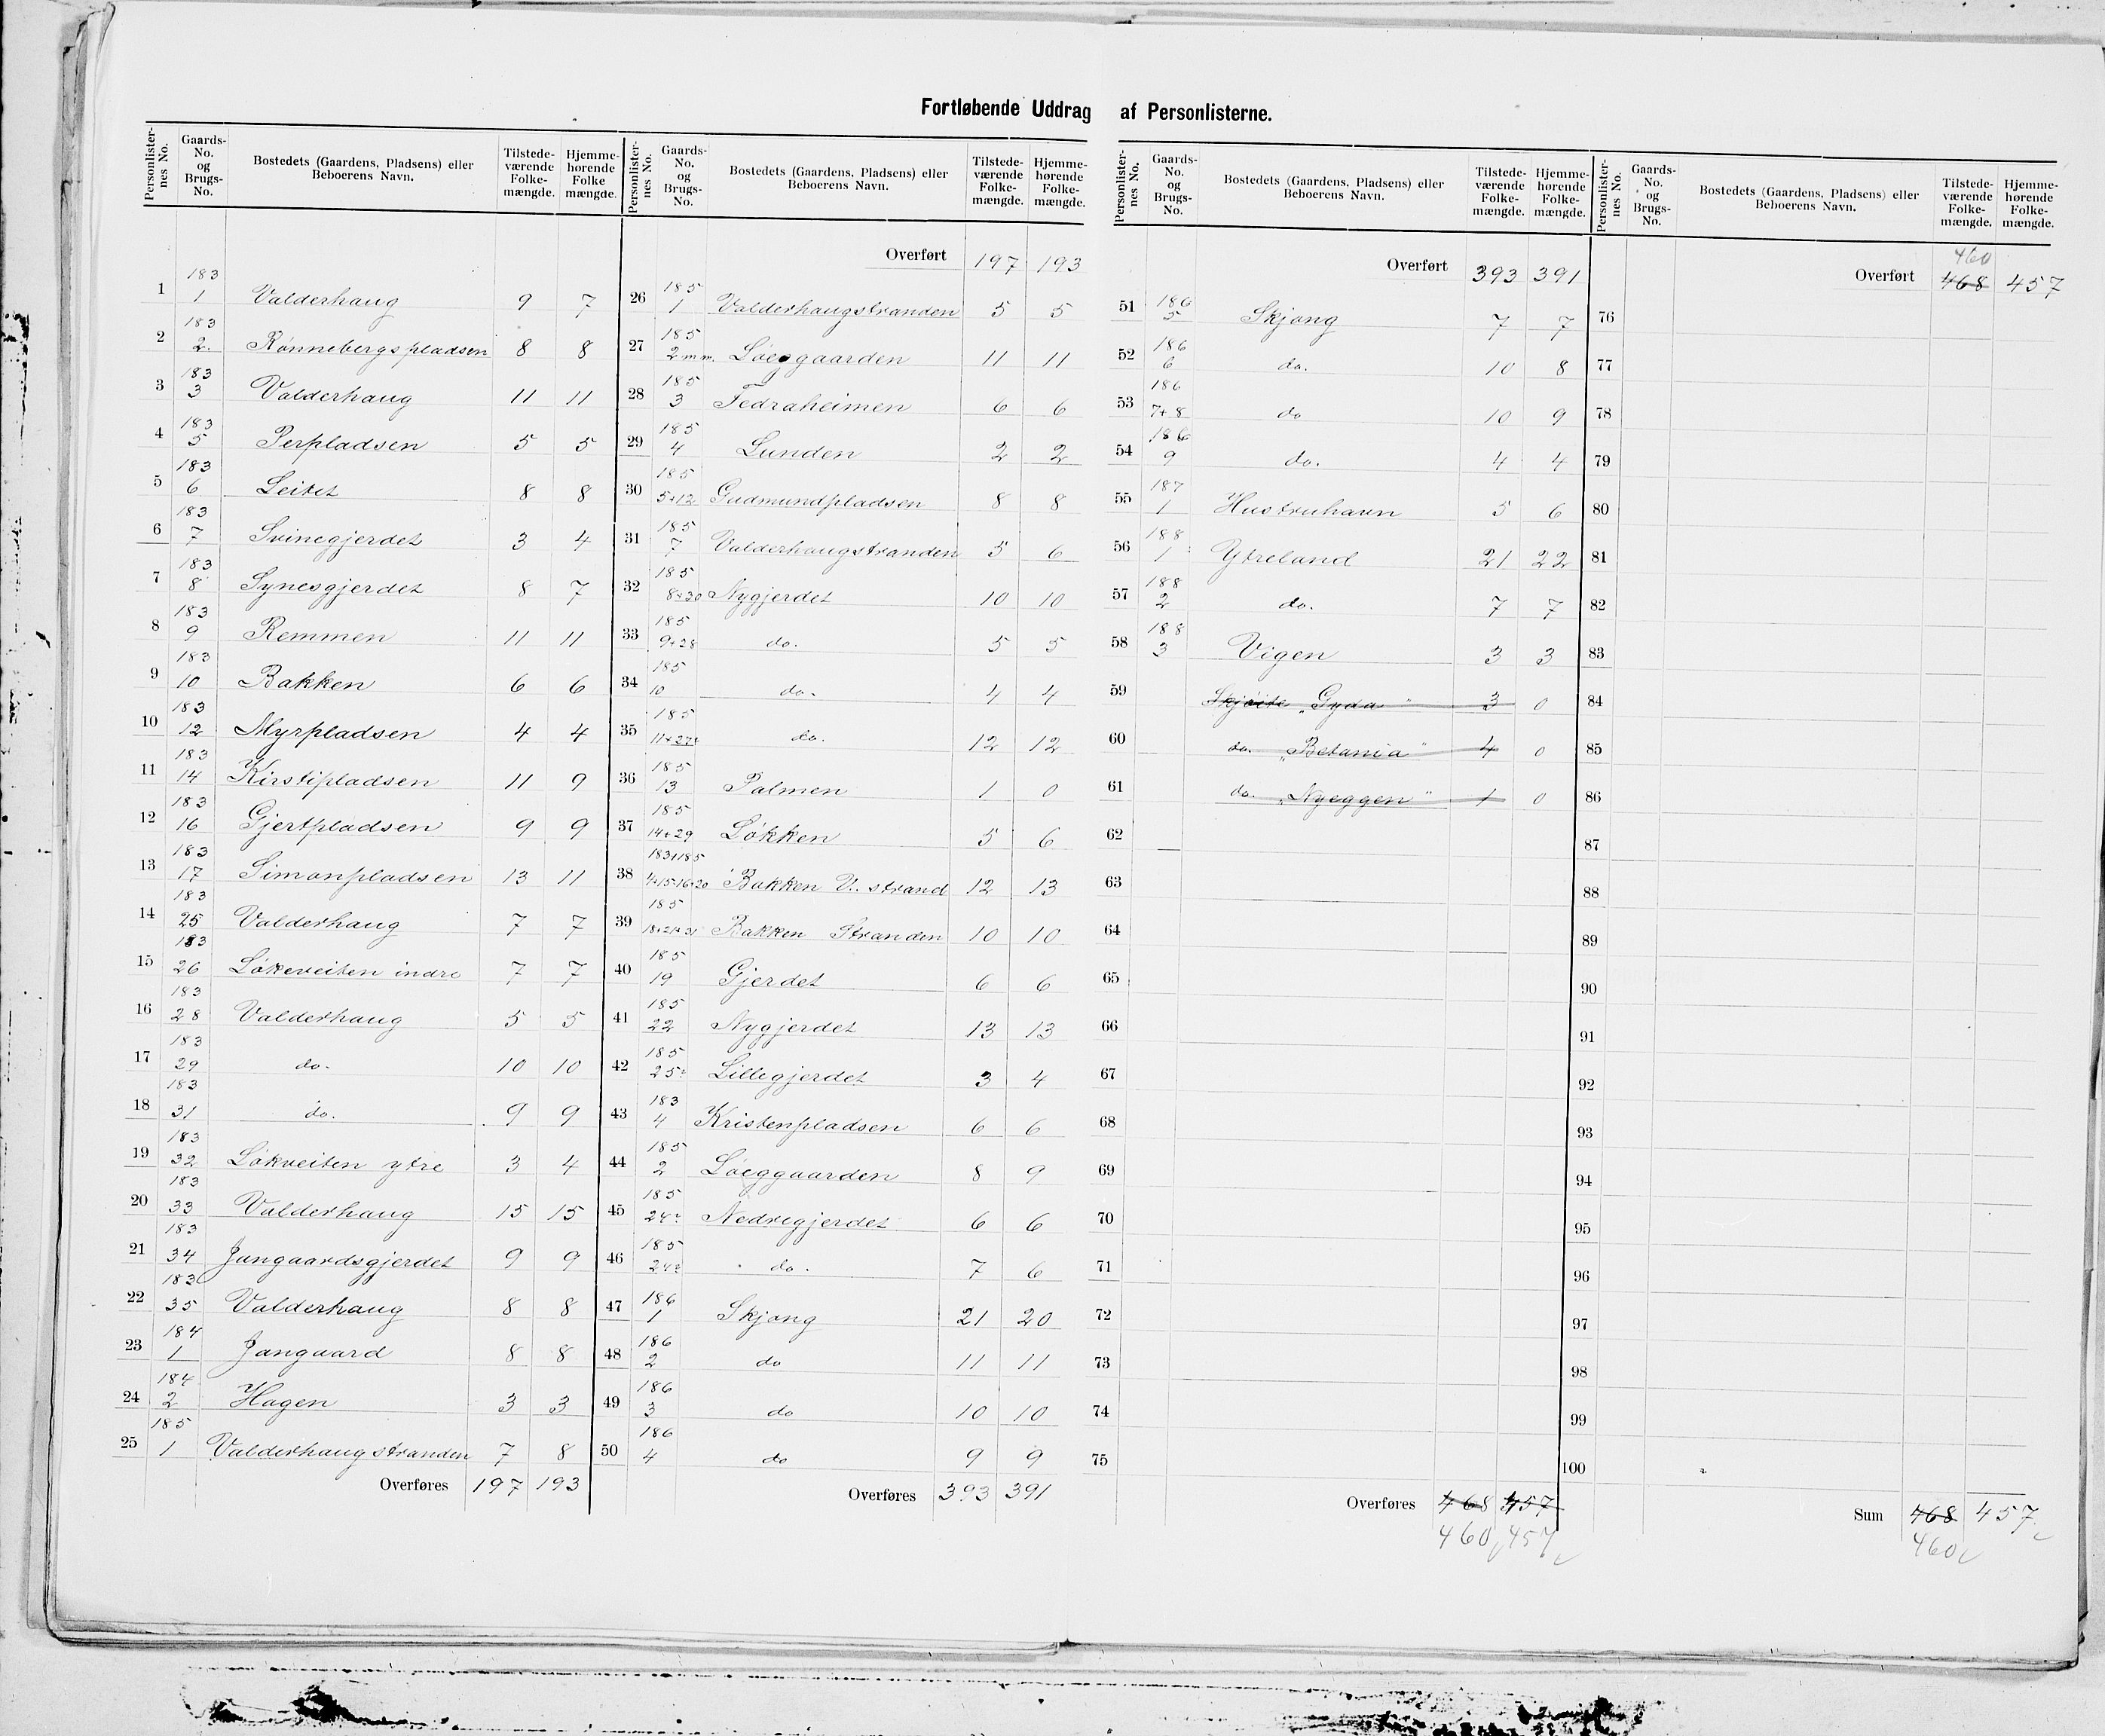 Fortløbende Uddrag af Personlisterne.
Personlisternes No. Gaards-No. og Brugs-No. Bostedets (Gaardens, Pladsens) eller Beboerens Navn. Tilstedeværende Folkemængde. Hjemmehørende Folkemængde.
1 183 1 Valderhaug 9 7
2 183 2. Rønnebergspladsen 8 8
3 183 3 Valderhaug 11 11
4 183 5 Perpladsen 5 5
5 183 6 Leitet 8 8
6 183 7 Svinegjerdet 3 4
7 183 8 Synesgjerdet 8 7
8 183 9 Remmen 11 11
9 183 10 Bakken 6 6
10 183 12 Myrpladsen 4 4
11 183 14 Kirstipladsen 11 9
12 183 16 Gjertpladsen 9 9
13 183 17 Simonpladsen 13 11
14 183 25 Valderhaug 7 7
15 183 26 Løkeveiten indre 7 7
16 183 28 Valderhaug 5 5
17 183 29 do. 10 10
18 183 31 do. 9 9
19 183 32 Løkveiten ytre 3 4
20 183 33 Valderhaug 15 15
21 183 34 Jangaardsgjerdet 9 9
22 183 35 Valderhaug 8 8
23 184 1 Jangaard 8 8
24 184 2 Hagen 3 3
25 185 1 Valderhaugstranden 7 8
Overføres 197 193
Personlisternes No. Gaards-No. og Brugs-No. Bostedets (Gaardens, Pladsens) eller Beboerens Navn. Tilstedeværende Folkemængde. Hjemmehørende Folkemængde.
Overført 197 193
26 185 1 Valderhaugstranden 5 5
27 185 2 m m. Løeggaarden 11 11
28 185 3 Fedraheimen 6 6
29 185 4 Lunden 2 2
30 185 5+12 Gudmundpladsen 8 8
31 185 7 Valderhaugstranden 5 6
32 185 8+30 Nygjerdet 10 10
33 185 9+28 do. 5 5
34 185 10 do. 4 4
35 185 do. 12 12
36 185 13 Palmen 1 0
37 185 14+29 Løkken 5 6
38 183+185 Bakken V. strand 12 13
39 185 Bakken Stranden 10 10
40 185 19 Gjerdet 6 6
41 185 22 Nygjerdet 13 13
42 185 Lillegjerdet 3 4
43 183 4 Kristenpladsen 6 6
44 185 2 Løeggaarden 8 9
45 185 Nedregjerdet 6 6
46 185 do. 7 6
47 186 1 Skjong 21 20
48 186 2 do 11 11
49 186 3 do 10 10
50 186 4 do 9 9
Overføres 393 391
Personlisternes No. Gaards-No. og Brugs-No. Bostedets (Gaardens, Pladsens) eller Beboerens Navn. Tilstedeværende Folkemængde. Hjemmehørende Folkemængde.
Overført 393 391
51 186 5 Skjong 7 7
52 186 6 do. 10 8
53 186 7+8 do 10 9
54 186 9 do. 4 4
55 187 1 Hustruhavn 5 6
56 188 1 Ytreland 21 22
57 188 2 do. 7 7
58 188 3 Vigen 3 3
59 Skjøite "Gyda" 3 0
60 do. "Betania" 4 0
61 do. "Nyeggen" 1 0
62
63
64
65
66
67
68
69
70
71
72
73
74
75
Overføres 468 457
460 457
Personlisternes No. Gaards-No. og Brugs-No. Bostedets (Gaardens, Pladsens) eller Beboerens Navn. Tilstedeværende Folkemængde. Hjemmehørende Folkemængde.
460
Overført 468 457
76
77
78
79
80
81
82
83
84
85
86
87
88
89
90
91
92
93
94
95
96
97
98
99
100
Sum 468 457
460